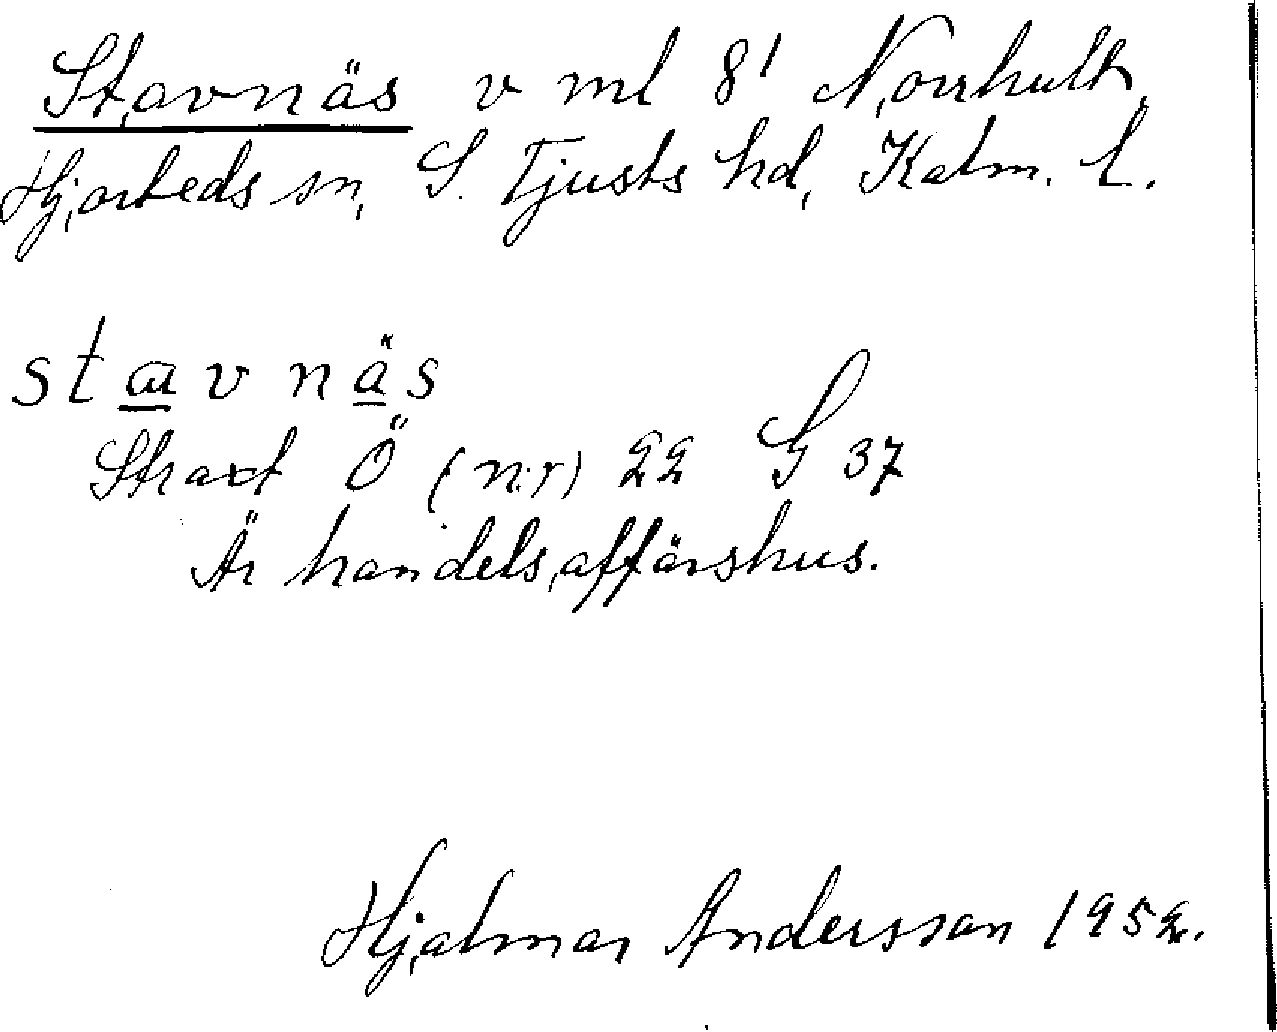 Stavnäs v ml 8¹ Norrhult,
Hjorteds sn, S. Tjusts hd, Kalm. l.
stɑvnäs
Straxt Ö (n:r) 22 G 37
Är handels,affärshus.
Hjalmar Andersson 1952.